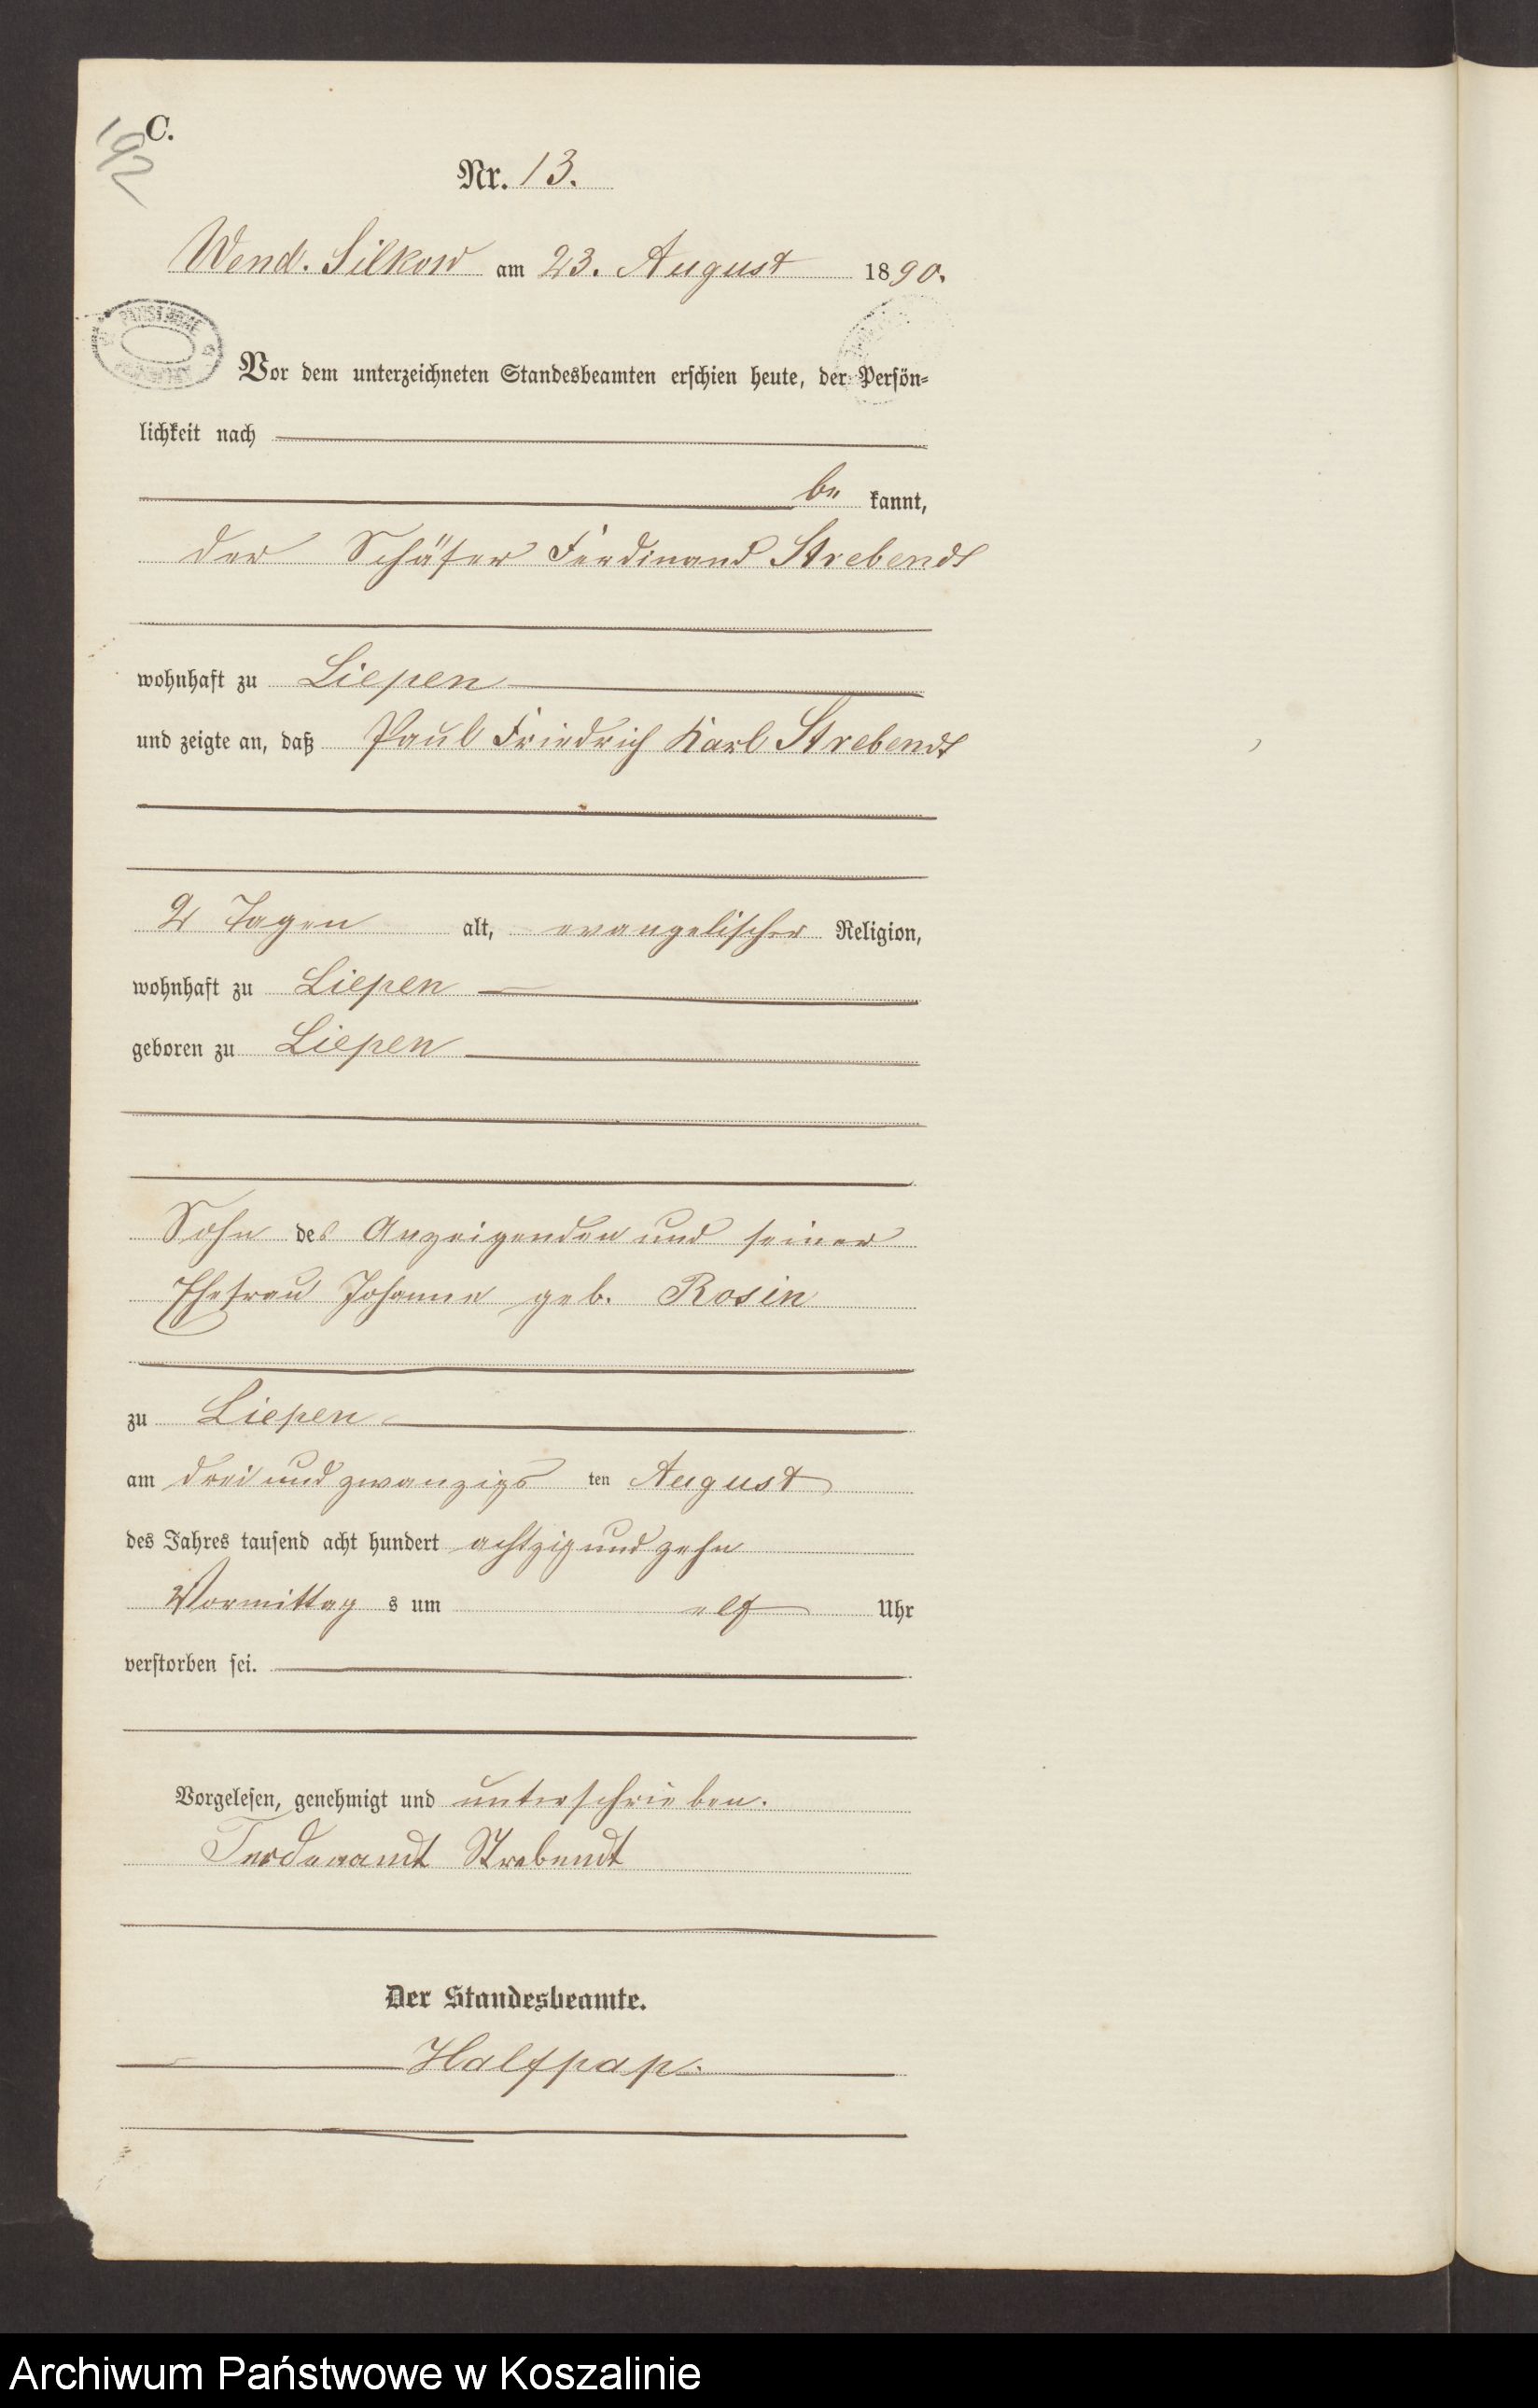 C.
192
Nr. 13.
Wend. Silkow am 23. August 1890.
Vor dem unterzeichneten Standesbeamten erschien heute, der Persön-
lichkeit nach
be kannt,
der Schäfer Ferdinand Strebendt
wohnhaft zu Liepen
und zeigte an, daß Paul Friedrich Karl Strebendt
2 Tagen alt, evangelischer Religion,
wohnhaft zu Liepen
geboren zu Liepen
Sohn des Anzeigenden und seiner
Ehefrau Johanne geb. Rosin
zu Liepen
am drei und zwanzigs ten August
des Jahres tausend acht hundert achtzig und zehn
Vormittag s um elf Uhr
verstorben sei.
Vorgelesen, genehmigt und unterschrieben.
Strebendt
Der Standesbeamte.
Halfpap.
Archiwum Państwowe w Koszalinie